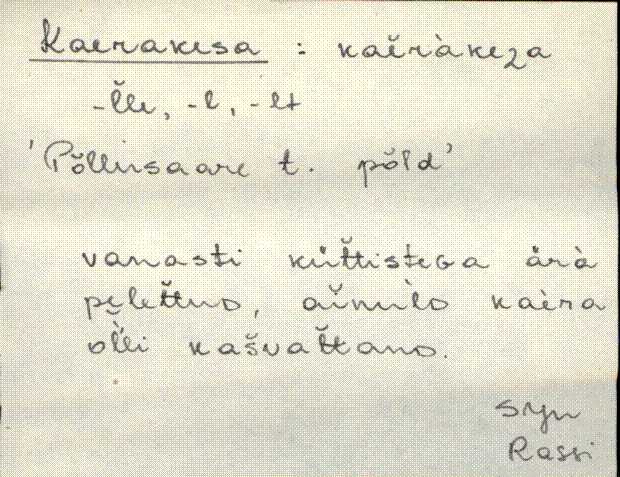 Kaerakesa : kaèràkeza
-l̆le, -l, -lt
'Põllusaare t. põld'
vanasti küt̆tisteGa ärà
pe̮let̆tuᴅ, ainùlᴅ kaèra
ol̆li kašvat̆tanᴅ.
Syn
Rassi